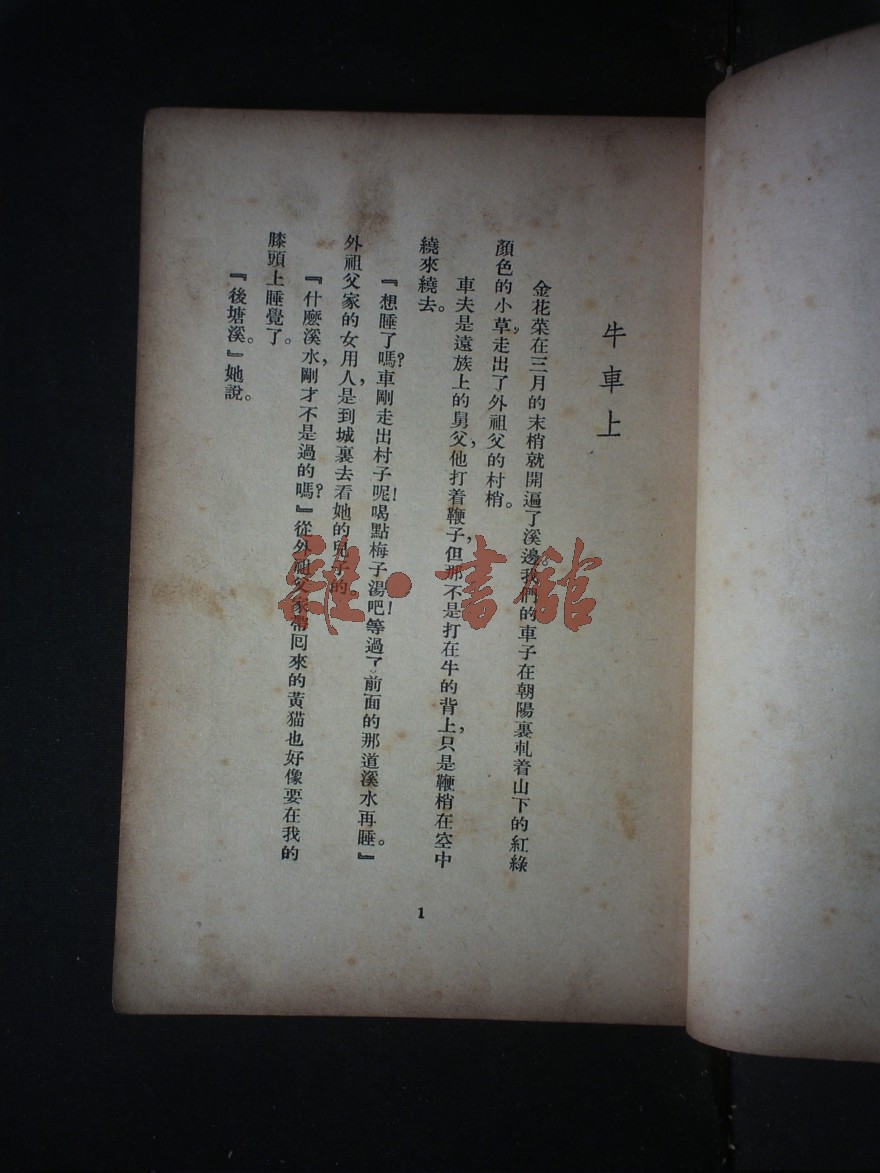 牛車上
金花菜在三月的末梢就開遍了溪邊。我們的車子在朝陽裏軋着山下的紅綠
顏色的小草，走出了外祖父的村梢。
車夫是遠族上的舅父，他打着鞭子，但那不是打在牛的背上，只是鞭梢在空中
繞來繞去。
『想睡了嗎？車剛走出村子呢！喝點梅子湯吧！等過了前面的那道溪水再睡。』
外祖父家的女用人，是到城裏去看她的兒子的。
『什麼溪水，剛才不是過的嗎？』從外祖父家帶囘來的黃猫也好像要在我的
膝頭上睡覺了。
『後塘溪。』她說。
1
雜·書館